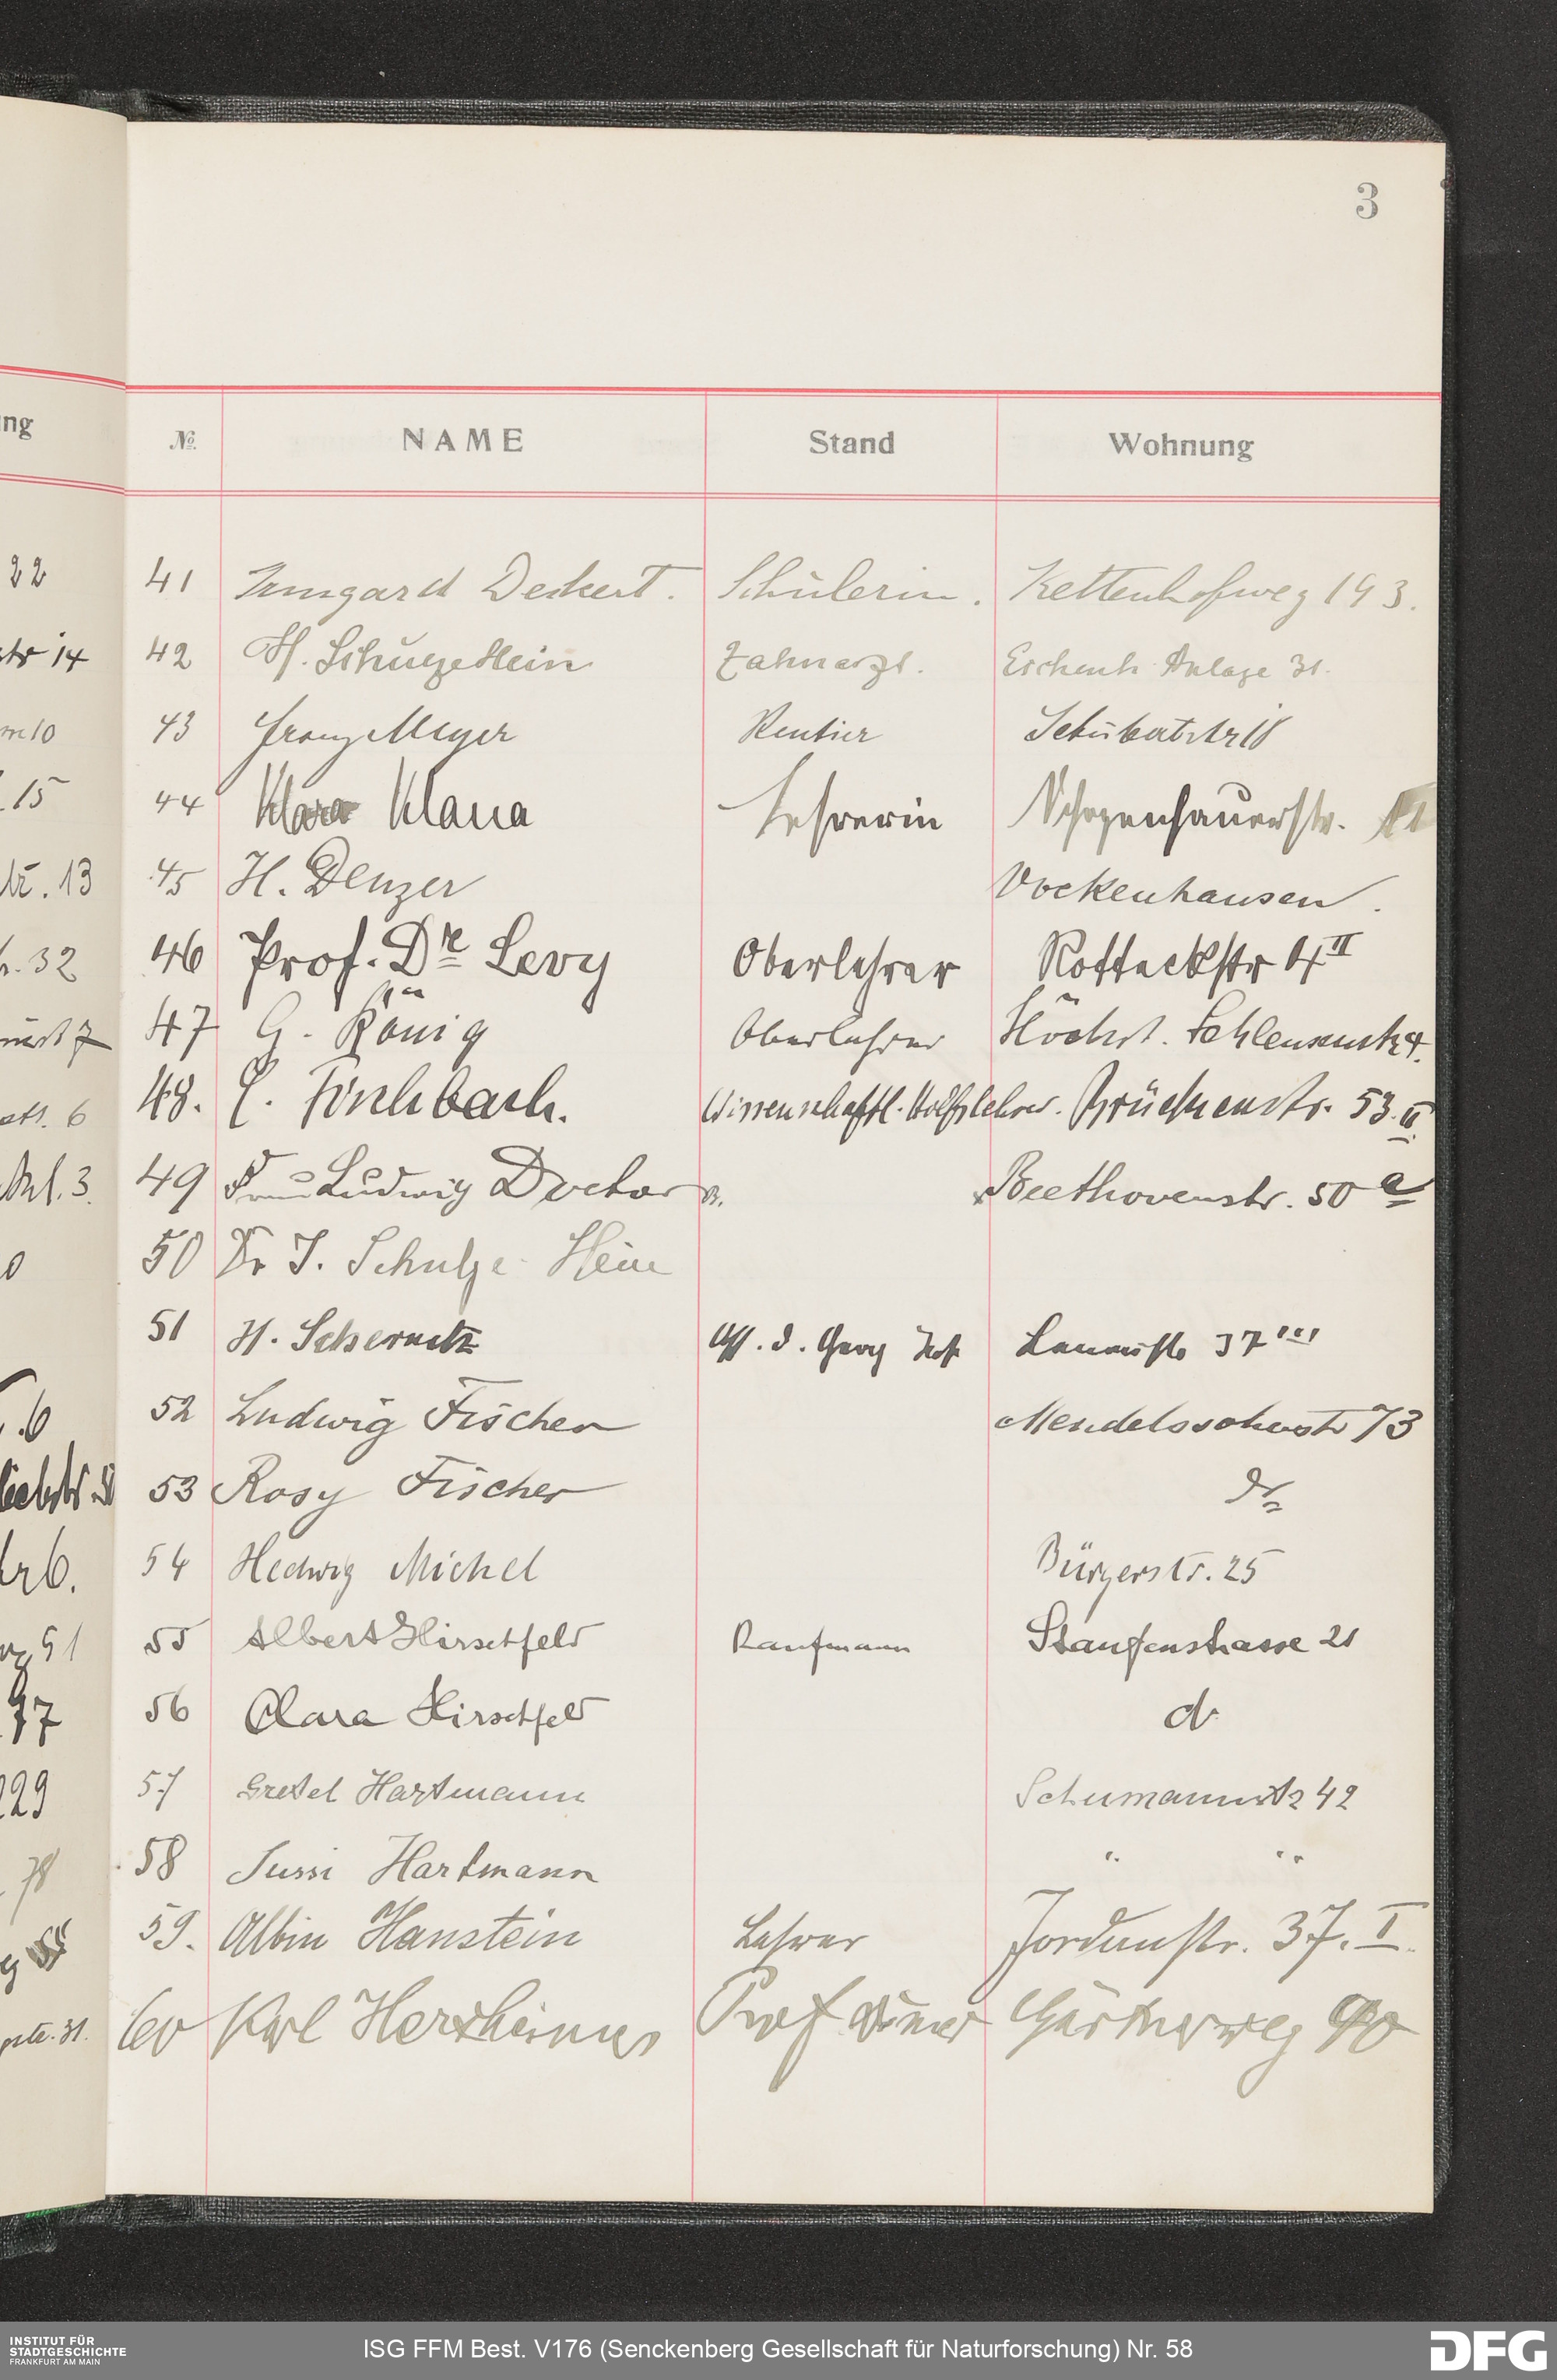 3
ng
№ NAME Stand Wohnung
22
41 Irmgard Deckert. Schülerin. Kettenhofweg 193.
14
42 H. Schulze Hein Zahnarzt. Eschenh. Anlage 31.
10
43 Franz Meyer Rentier Schubertstr 18
15
44 Klara Lehrerin Schopenhauerstr.
13
45 H. Denzer Vockenhausen.
32
46 Prof. Dr Levy Oberlehrer Rotteckstr 4 II
47 G. König Oberlehrer Höchst. Schleusenstr 4.
6
48. Wissenschaftl. Hilfslehrer. Brückenstr. 53. II.
3.
49 Frau Ludwig Doctor Beethovenstr. 50 a
50 Dr J. Schulze-Hein
51 H. 37 III
6
52 Ludwig Fischer Mendelssohnstr 73
53 Rosy Fischer do
6.
54 Hedwig Michel Bürgerstr. 25
51
55 Albert Hirschfeld Kaufmann Staufenstrasse 21
77
56 Clara Hirschfeld do
29
57 Gretel Hartmann Schumannstr 42
78
58 Sussi Hartmann " "
59. Albin Hanstein Lehrer Jordanstr. 37. I.
31.
60 Karl Herxheimer Prof Gärtnerweg
INSTITUT FÜR
STADTGESCHICHTE
FRANKFURT AM MAIN
ISG FFM Best. V176 (Senckenberg Gesellschaft für Naturforschung) Nr. 58
DFG